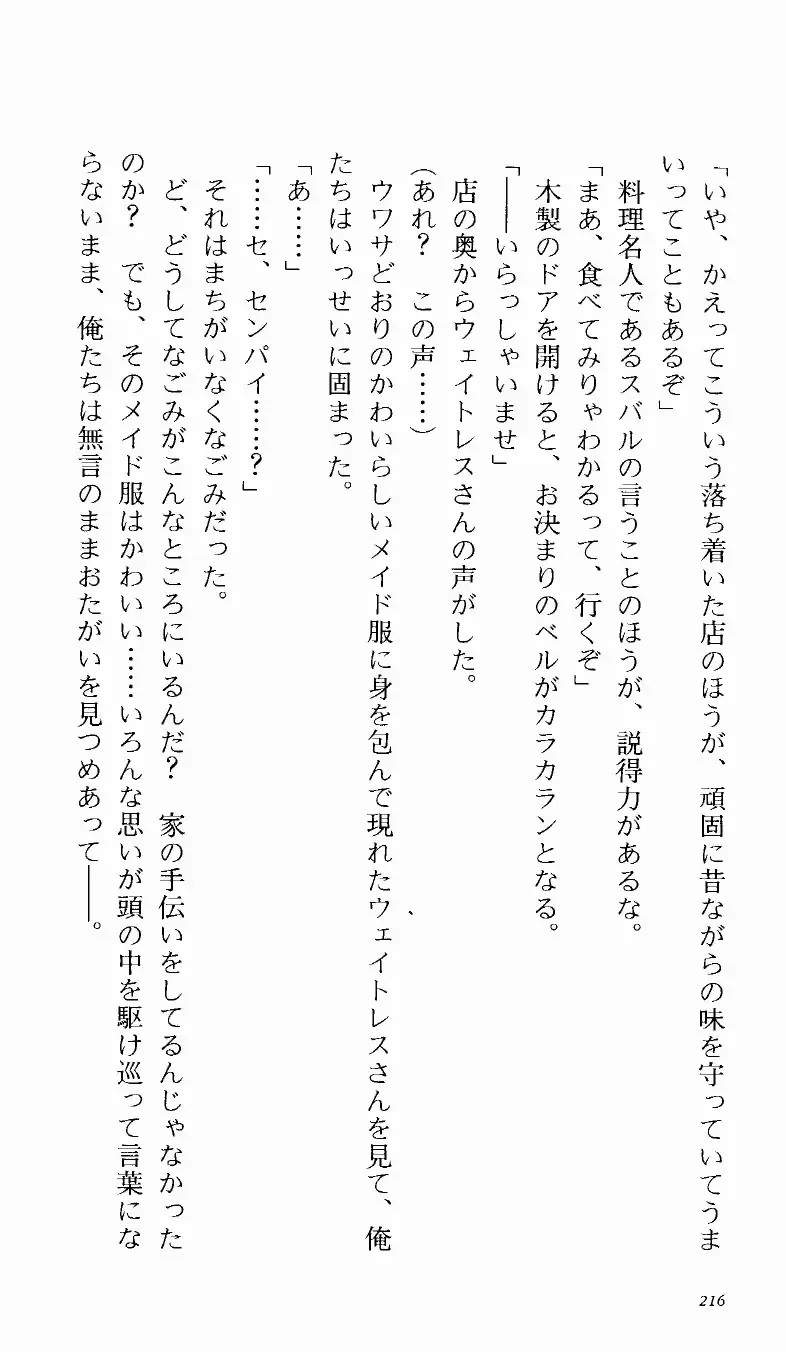 「いや、かえってこういう落ち着いた店のほうが、頑固に昔ながらの味を守っていてうま
いってこともあるぞ」
料理名人であるスバルの言うことのほうが、説得力があるな。
「まあ、食べてみりゃわかるって、行くぞ」
木製のドアを開けると、お決まりのベルがカラカランとなる。
「――いらっしゃいませ」
店の奥からウェイトレスさんの声がした。
(あれ？　この声……)
ウワサどおりのかわいらしいメイド服に身を包んで現れたウェイトレスさんを見て、俺
たちはいっせいに固まった。
「あ……」
「……セ、センパイ……？」
それはまちがいなくなごみだった。
ど、どうしてなごみがこんなところにいるんだ？　家の手伝いをしてるんじゃなかった
のか？　でも、そのメイド服はかわいい……いろんな思いが頭の中を駆け巡って言葉にな
らないまま、俺たちは無言のままおたがいを見つめあって――。
216